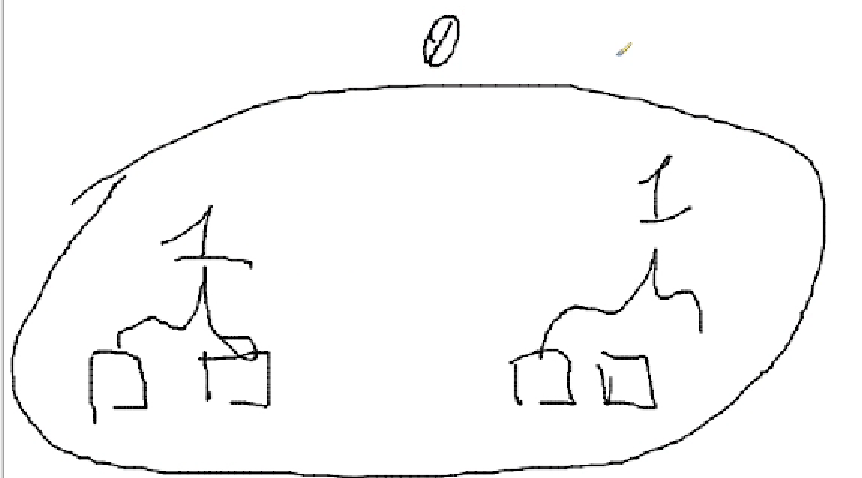 0
1
1